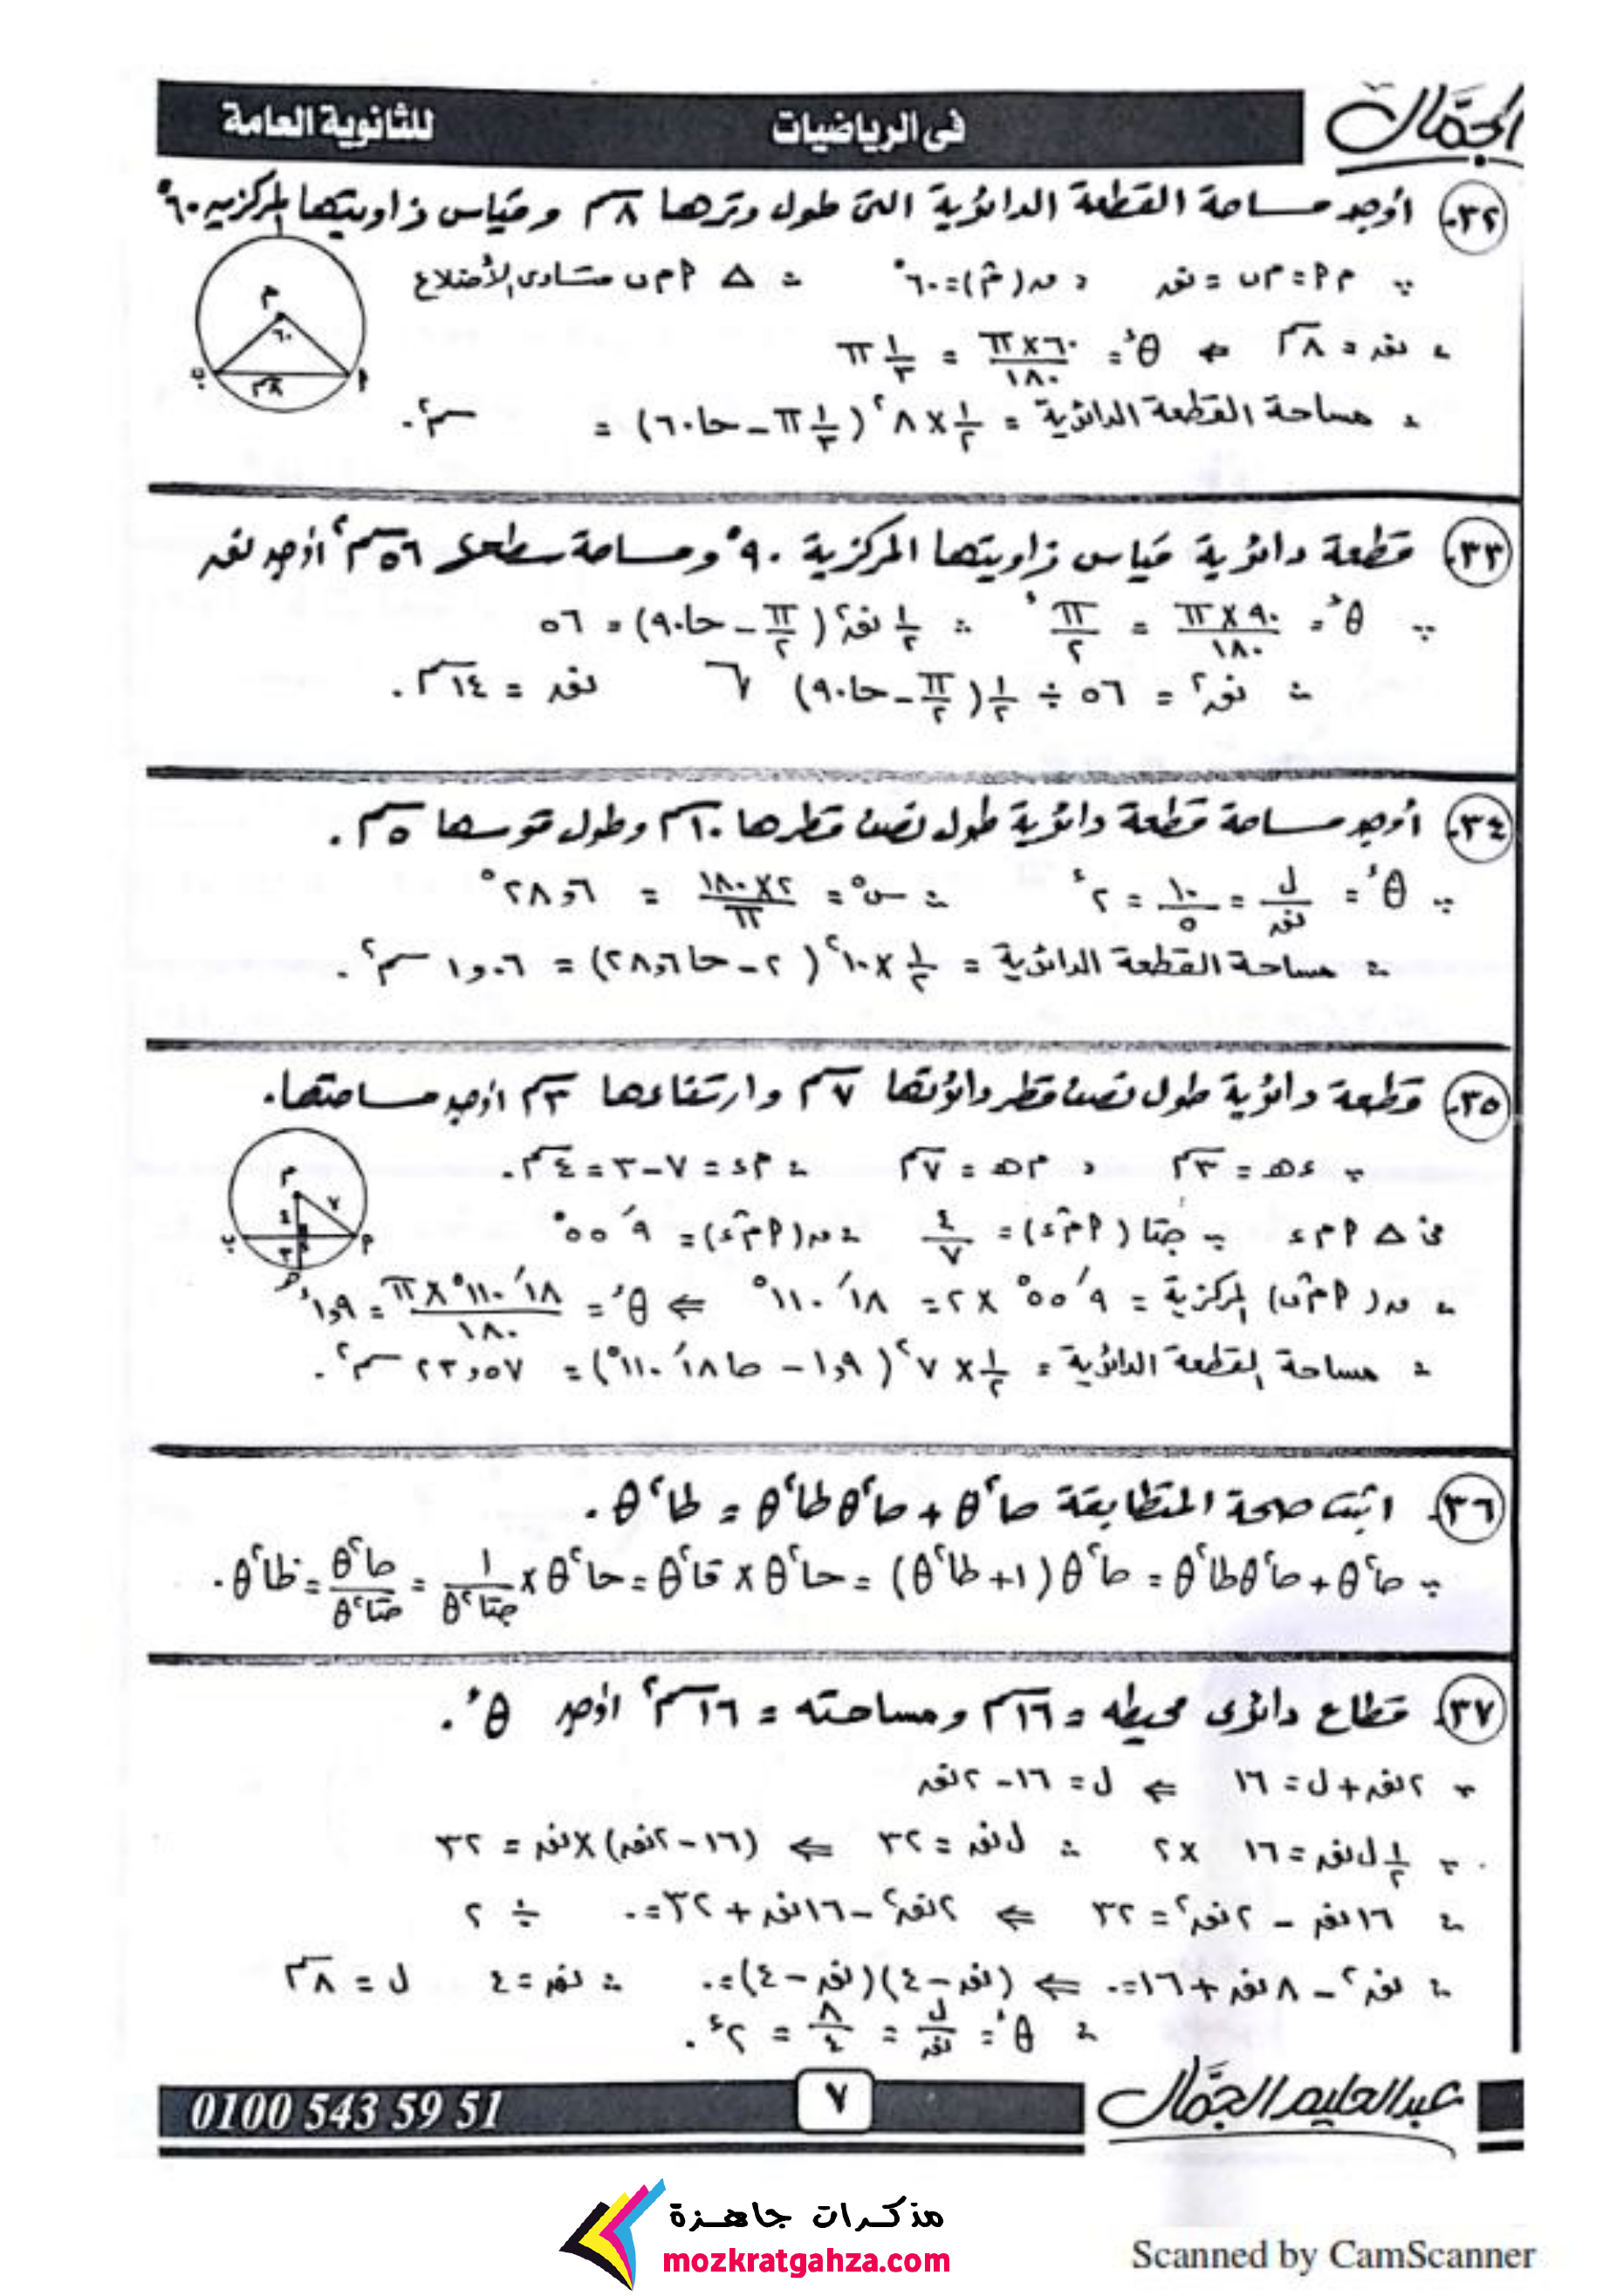 الجمَّال
فى الرياضيات
للثانوية العامة
٣٢- أوجد مساحة القطعة الدائرية التى طول وترها ٨سم وقياس زاويتها المركزيه ٦٠°
∵ م٢ = م ب = نق ، ق(م̂) = ٦٠° ∴ △ ٢ م ب متساوى الأضلاع
∴ نق = ٨سم ⇐ θء = ٦٠×π/١٨٠ = ١/٣ π
∴ مساحة القطعة الدائرية = ١/٢ × ٨² (١/٣ π − حا٦٠) = سم².
٣٣- قطعة دائرية قياس زاويتها المركزية ٩٠° ومساحة سطحها ٥٦سم² أوجد نق
∵ θء = ٩٠×π/١٨٠ = π/٢ ء ∴ ١/٢ نق² (π/٢ − حا٩٠) = ٥٦
∴ نق² = ٥٦ ÷ ١/٢ (π/٢ − حا٩٠) نق = ١٤سم.
٣٤- أوجد مساحة قطعة دائرية طول نصف قطرها ١٠سم وطول قوسها ٥سم.
∵ θء = ل/نق = ١٠/٥ = ٢ء ∴ س° = ٢×١٨٠/π = ٢٨,٦°
∴ مساحة القطعة الدائرية = ١/٢ × ١٠² (٢ − حا٢٨,٦) = ١,٠٦ سم².
٣٥- قطعة دائرية طول نصف قطر دائرتها ٧سم وارتفاعها ٣سم أوجد مساحتها.
∵ ءهـ = ٣سم ، م هـ = ٧سم ∴ م ء = ٧−٣ = ٤سم.
فى △ ٢ م ء ∵ جتا(٢ م̂ ء) = ٤/٧ ∴ ق(٢ م̂ ء) = ٩´ ٥٥°
∴ ق(٢ م̂ ب) المركزية = ٩´ ٥٥° × ٢ = ١٨´ ١١٠° ⇐ θء = ١٨´ ١١٠° × π/١٨٠ = ١,٩ء
∴ مساحة القطعة الدائرية = ١/٢ × ٧² (١,٩ − حا ١٨´ ١١٠°) = ٢٣,٥٧ سم².
٣٦- اثبت صحة المتطابقة حا²θ + حا²θ طا²θ = طا²θ.
∵ حا²θ + حا²θ طا²θ = حا²θ (١+ طا²θ) = حا²θ × قا²θ = حا²θ × ١/جتا²θ = حا²θ/جتا²θ = طا²θ.
٣٧- قطاع دائرى محيطه = ١٦سم ومساحته = ١٦سم² أوجد θء.
∵ ٢نق + ل = ١٦ ⇐ ل = ١٦ − ٢نق
∵ ١/٢ ل نق = ١٦ ×٢ ∴ ل نق = ٣٢ ⇐ (١٦ − ٢نق) × نق = ٣٢
∴ ١٦نق − ٢نق² = ٣٢ ⇐ ٢نق² − ١٦نق + ٣٢ = ٠ ÷ ٢
∴ نق² − ٨نق + ١٦ = ٠ ⇐ (نق − ٤)(نق − ٤) = ٠ ∴ نق = ٤ ل = ٨سم
∴ θء = ل/نق = ٨/٤ = ٢ء.
عبدالحليم الجمَّال
٧
0100 543 59 51
مذكرات جاهزة
mozkratgahza.com
Scanned by CamScanner